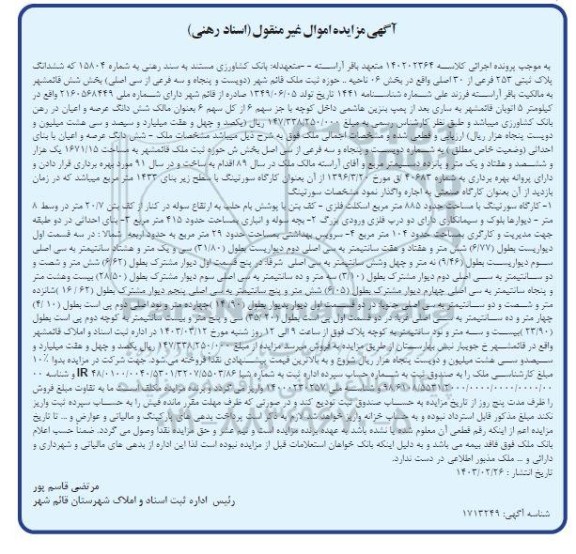 آگهی مزایده اموال غیر منقول (اسناد رهنی)
به موجب پرونده اجرائی کلاسه ۱۴۰۲۰۲۳۶۴ متعهد باقر آراسته - متعهدله: بانک کشاورزی مستند به سند رهنی به شماره ۱۵۸۰۴ که ششدانگ
پلاک ثبتی ۲۵۳ فرعی از ۳۰ اصلی واقع در بخش ۰۶ ناحیه .. حوزه ثبت ملک قائم شهر (دویست و پنجاه و سه فرعی از سی اصلی) بخش شش قائمشهر
به مالکیت باقر آراسته فرزند علی شماره شناسنامه ۱۴۴۱ تاریخ تولد ۱۳۴۹/۰۶/۰۵ صادره از قائم شهر دارای شماره ملی ۲۱۶۰۵۶۸۴۴۹ واقع در
کیلومتر ۵ اتوبان قائمشهر به ساری بعد از پمپ بنزین هاشمی داخل کوچه با جز سهم ۶ از کل سهم ۶ بعنوان مالک شش دانگ عرصه و اعیان در رهن
بانک کشاورزی میباشد و طبق نظر کارشناس رسمی به مبلغ ۱۴۷/۳۳۸/۲۵۰/۰۰۰ ریال (یکصد و چهل و هفت میلیارد و سیصد و سی هشت میلیون و
دویست پنجاه هزار ریال) ارزیابی و قطعی شده و حدود
احداثی (وضعیت خاص مطلق) به شماره دویست و پنجاه و سه فرعی از سی اصل بخش ش حوزه ثبت ملک قائمشهر به مساحت ۱۶۷۱/۱۵ یک هزار
و ششصد و هفتاد و یک ممیز پانزده صدم متر مربع و آقای آراسته مالک ملک در سال ۸۹ اقدام به ساخت و در سال ۹۱ مورد بهره برداری قرار دادن و
دارای پروانه بهره برداری به شماره ۴۰۶۸۳ ق مورخ ۱۳۹۶/۳/۲۰ از آن بعنوان کارگاه سورتینگ با سطح زیر بنای ۱۴۳۲ متر مربع میباشد که در زمان
بازدید از آن بعنوان کارگاه صنعتی به اجاره واگذار نمود مشخصات سورتینگ
۱- کارگاه سورتینگ با مساحت حدود ۸۸۵ متر مربع اسکلت فلزی - کف بتن با پوشش بام حلب به ارتفاع سوله در کنار از کف بتن ۲۰/۷ متر در وسط ۸
متر - دیوارها بلوک و سیمانکاری دارای دو درب فلزی ورودی بزرگ ۲- بجه سوله و انباری بمساحت حدود ۴۱۵ متر مربع ۳- بنای احداثی در دو طبقه
جهت مدیریت و کارگری بمساحت حدود ۱۰۴ متر مربع ۴- سرویس بهداشتی بمساحت حدود ۲۹ متر مربع به حدود اربعه: شمالا : در سه قسمت اول
دیواریست بطول (۶/۷۷) شش متر و هفتاد و هفت سانتیمتر به سی اصلی دوم دیواریست بطول (۳۱/۸۰) سی و یک متر و هشتاد سانتیمتر به سی اصلی
سوم دیواریست بطول (۹/۴۶) نه متر و چهل وشش سانتیمتر به سی اصلی شرقا: در پنج قسمت اول دیوار مشترک بطول (۶/۶۲) شش متر و شصت و
دو سانتیمتر به سی اصلی دوم دیوار مشترک بطول (۳/۱۰) سه متر و ده سانتیمتر به سی اصلی سوم دیوار مشترک بطول (۲۸/۵۰) بیست وهشت متر
و پنجاه سانتیمتر به سی اصلی چهارم دیوار مشترک بطول (۶/۰۵) شش متر و پنج سانتیمتر به سی اصلی پنجم دیوار مشترک بطول (۱۶/۶۲) شانزده
متر و شصت و دو سانتیمتر به سی اصلی
چهار متر و ده سانتیمتر به سی اصلی
(۲۳/۹۰) بیست و سه متر و نود سانتیمتر به کوچه پلاک فوق از ساعت ۹ الی ۱۲ روز شنبه مورخ ۱۴۰۳/۰۳/۱۲ در اداره ثبت اسناد و املاک قائمشهر
واقع در قائمشهر خ جویبار نبش بهارستان از طریق مزایده به فروش میرسد مزایده از مبلغ ۱۴۷/۳۳۸/۲۵۰/۰۰۰ ریال یکصد و چهل و هفت میلیارد و
سیصدو سی هشت میلیون و دویست پنجاه هزار ریال شروع و به بالاترین قیمت پیشنهادی نقدا فروخته می شود جهت شرکت در مزایده بدوا ۱۰٪
مبلغ کارشناسی ملک را به صندوق ثبت به شماره حساب سپرده اداره ثبت به شماره شبا
را ظرف مدت پنج روز از تاریخ مزایده به حساب صندوق ثبت تودیع کند و در صورتی که ظرف مهلت مقرر مانده فیش را به حساب سپرده ثبت واریز
نکند مبلغ مذکور قابل استرداد نبوده و به حساب خزانه واریز خواهد شد
مزایده اعم از اینکه رقم قطعی آن معلوم شده یا نشده باشد به عهده برنده مزایده است و نیم عشر و حق مزایده نقدا وصول می گردد. ضمنا حسب اعلام
بانک ملک فوق فاقد بیمه می باشد و به دلیل اینکه بانک خواهان استعلامات قبل از مزایده نبوده است لذا این اداره از بدهی های مالیاتی و شهرداری و
دارائی و ... ملک مذبور اطلاعی در دست ندارد.
تاریخ انتشار : ۱۴۰۳/۰۲/۲۶
مرتضی قاسم پور
رئیس اداره ثبت اسناد و املاک شهرستان قائم شهر
شناسه آگهی: ۱۷۱۳۲۴۹